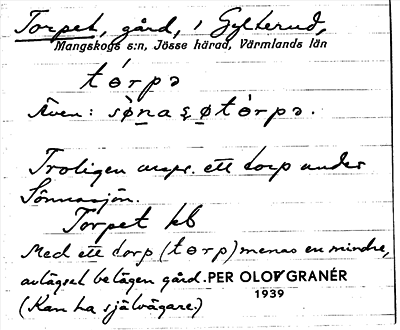 Torpet, gård, i Gylterud,
Mangskogs s:n, Jösse härad, Värmlands län
tɵrpə
Även: sø̀naʂøtɵ̀rpə.
Troligen urspr. ett torp under
Sönnasjön.
Torpet kb
Med ett torp (tɵrp) menas en mindre,
avlägset belägen gård. PER OLOV GRANÉR
1939
(Kan ha självägare.)